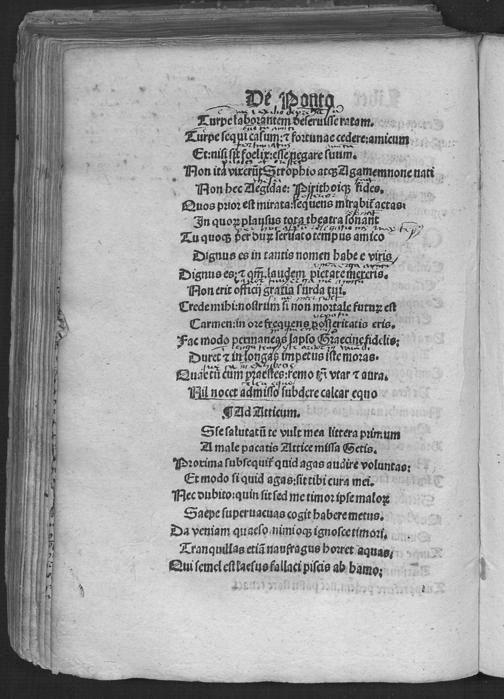 De Ponto
Turpe laborantem deseruisse ratem.
Turpe sequi casum: & fortunae cedere: amicum
Et: nisi sit foelix: esse negare suum.
Non ita vixerūt Strophio atq; Agamemnone nati
Non hec Aegidae: Pirithoiq; fides.
Quos prior est mirata: sequens mirabit̄ aetas:
In quoɼ plausus tota theatra sonant
Tu quoq; per durū seruato tempus amico
Dignus es in tantis nomen habere viris
Dignus es: & qm̄ laudem pietate mereris.
Non erit officij gratia surda tui.
Crede mihi: nostrum si non mortale futurū est
Carmen: in ore frequens posteritatis eris.
Fac modo permaneas lapso Graecine fidelis:
Duret & in longas impetus iste moras.
Quae tu cum praestes: remo tn̄ vtar & aura.
Nil nocet admisso subdere calcar equo
¶Ad Atticum.
Esse salutatū te vult mea littera primum
A male pacatis Attice missa Getis.
Proxima subsequit̄ quid agas audire voluntas:
Et modo si quid agas: sit tibi cura mei.
Nec dubito: quin sit sed me timor ipse maloɼ
Saepe superuacuas cogit habere metus.
Da veniam quaeso nimioq; ignosce timori.
Tranquillas etiā naufragus horret aquas.
Qui semel est laesus fallaci piscis ab hamo: